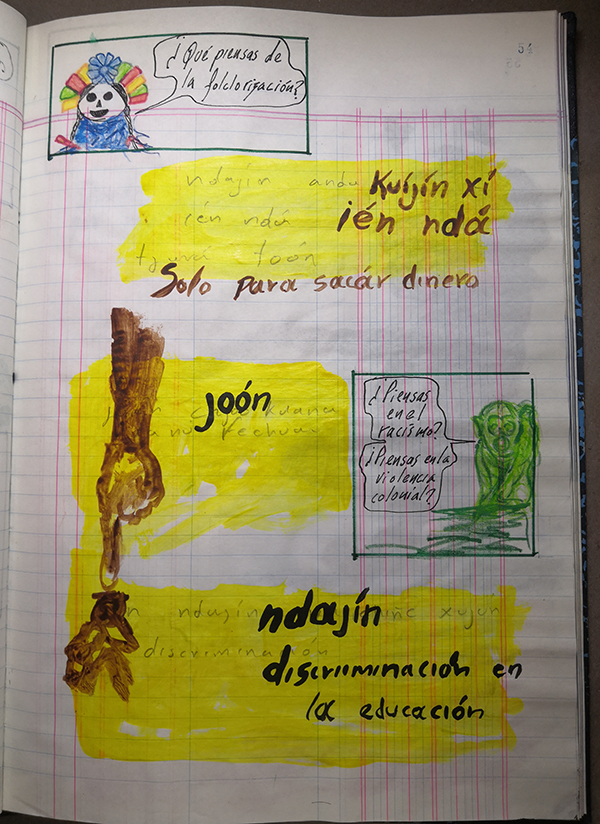 54
¿Qué piensas de
la folclorización?
ndajín andu
Kuijín xí
ién ndá
ién ndá
toón
Solo para sacár dinero
joón
¿Piensas
en el
racismo?
¿Piensas en la
violencia
colonial?
ndajín
xujún
discriminación
ndajín
discriminación en
la educación